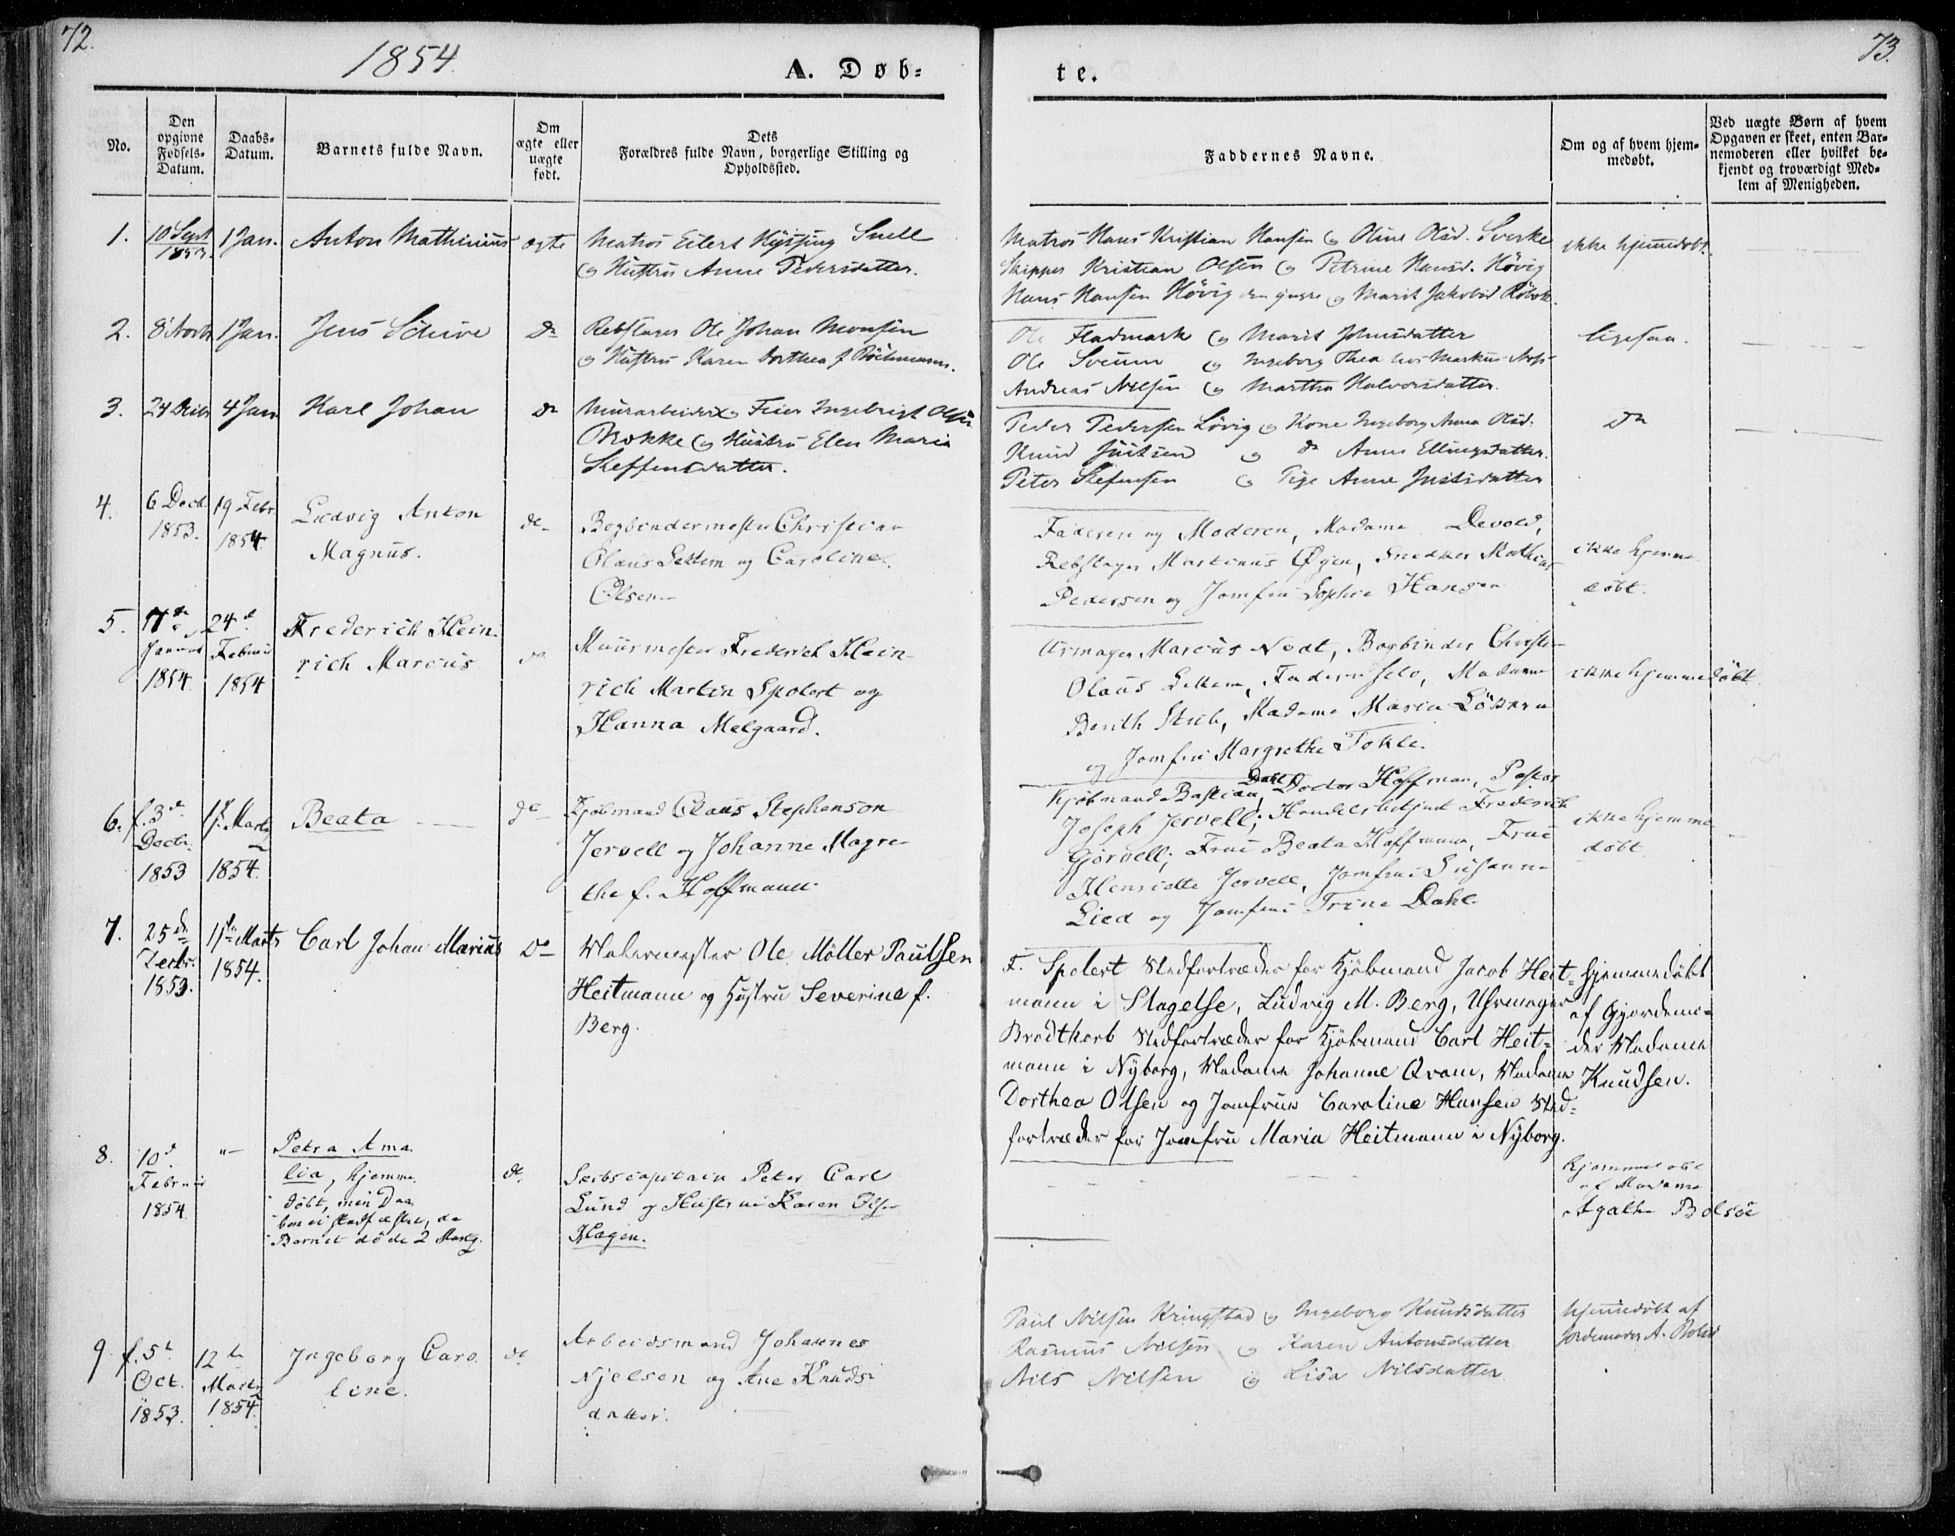 72.
1854.
A. Døb-
te.
73.
No.
Den opgivne Fødsels-Datum.
Daabs-Datum.
Barnets fulde Navn.
Om ægte eller uægte født.
Dets
Forældres fulde Navn, borgerlige Stilling og
Opholdssted.
Faddernes Navne.
Om og af hvem hjem-
medøbt.
Ved uægte Børn af hvem
Opgaven er skeet, enten Bar-
nemoderen eller hvilket be-
kjendt og troværdigt Med-
lem af Menigheden.
1.
10 Sept
1853.
1 Jan.
Anton Mathinius
ægte
Matros Eilert Hysing Snell
og Hustru Anne Pedersdatter.
Matros Hans Kristian Hansen og Oline Olsd. Sverke
Skipper Kristian Olsen og Petrine Hansd. Hövig
Hans Hansen Hövig den yngre og Marit Jakobsd
ikke hjemmedøbt.
2.
1 Jan.
Jens Schive
Do
Rebslager Ole Johan Monsen
og Hustru Karen Dorthea f.
Ole Fladmark og Marit Johnsdatter
Ole Sveum og Ingeborg Thea hos Markus
Andreas Nilsen og Martha Halvorsdatter.
ligesaa.
3.
4 Jan
Karl Johan
Do
Murarbeider og Feier Ingebrigt Olsen
Brokke og Hustru Elen Maria
Steffensdatter.
Peder Pedersen Lövig og Kone Ingeborg Anna Olsd.
Knud Justsen og do Anne Ellingsdatter.
Peter Stefensen og Pige Anne Justisdatter
Do
4.
6 Decb.
1853.
19 Febr.
1854.
Ludvig Anton
Magnus.
do
Bogbindermester Christian
Olaus Settem og Caroline
Olsen
Faderen og Moderen, Madame Devold,
Rebslager Martinus Øyen, Snedker Mathias
Pedersen og Jomfru Sophie Hansen
ikke hjemme
døbt.
5.
Januar
1854.
24d
Februar
1854
Frederich Hein-
rich Marcus
do
Muurmester Frederich Hein-
rich Martin Spolert og
Hanna Melgaard.
Urmager Marcus Nodt, Bogbinder Christian
Olaus Settem, Faderen selv, Madame
Berith Strib, Madame Maria
og Jomfru Margrethe Tokle.
ikke hjemmedøbt.
6.
f. 3d
Decbr.
1853
Marts
1854.
Beata
do
Kjøbmand Claus Stephenson
Jervell og Johanne Magre-
the f. Hoffmann.
Kjøbmand Bastian Dahl, Doctor Hoffman, Pastor
Joseph Jervell; Handelsbetjent Frederich
Jervell; Frue Beata Hoffmann, Frue
Henriette Jervell, Jomfru Susanne
Lied og Jomfru Trine Dahl.
ikke hjemme
døbt.
7.
25de
Decbr.
1853.
Marts
1854.
Carl Johan Marius
Do
Malermester Ole Möller Paulsen
Heitmann og Hustru Severine f.
Berg.
F. Spolert Stedfortræder for Kjöbmand Jacob Heit-
mann i Slagelse, Ludvig M. Berg, Uhrmager
Brodtkorb Stedfortræder for Kjöbmand Carl Heit-
mann i Nyborg, Madame Johanne Qvam, Madame
Dorthea Olsen og Jomfrue Caroline Hansen Sted-
fortræder for Jomfru Maria Heitmann i Nyborg.
Hjemmedøbt
af Gjordemo-
der Madame
Knudsen.
8.
10d
Februar
1854
"
Petra Ama
lia, hjemme
døbt, men Daa
ben ei stadfæstet, da
Barnet døde 2 Marts.
do
Skibscapitain Peter Carl
Lund og Hustrue Karen Olse
Hagen.
hjemmedøbt
af Madame
Agathe Bolsøe
9
f. 5te
Oct.
1853.
12te
Marts
1854.
Ingeborg Caro-
line.
do
Arbeidsmand Johannes
Njelsen og Ane Knuds-
datter.
Paul Nilsen Kringstad og Ingeborg Knudsdatter
Rasmus Nilsen og Karen Antonsdatter
Nils Nilsen og Lisa Nilsdatter.
hjemmedøbt af
Jordemoder A. Bolsø